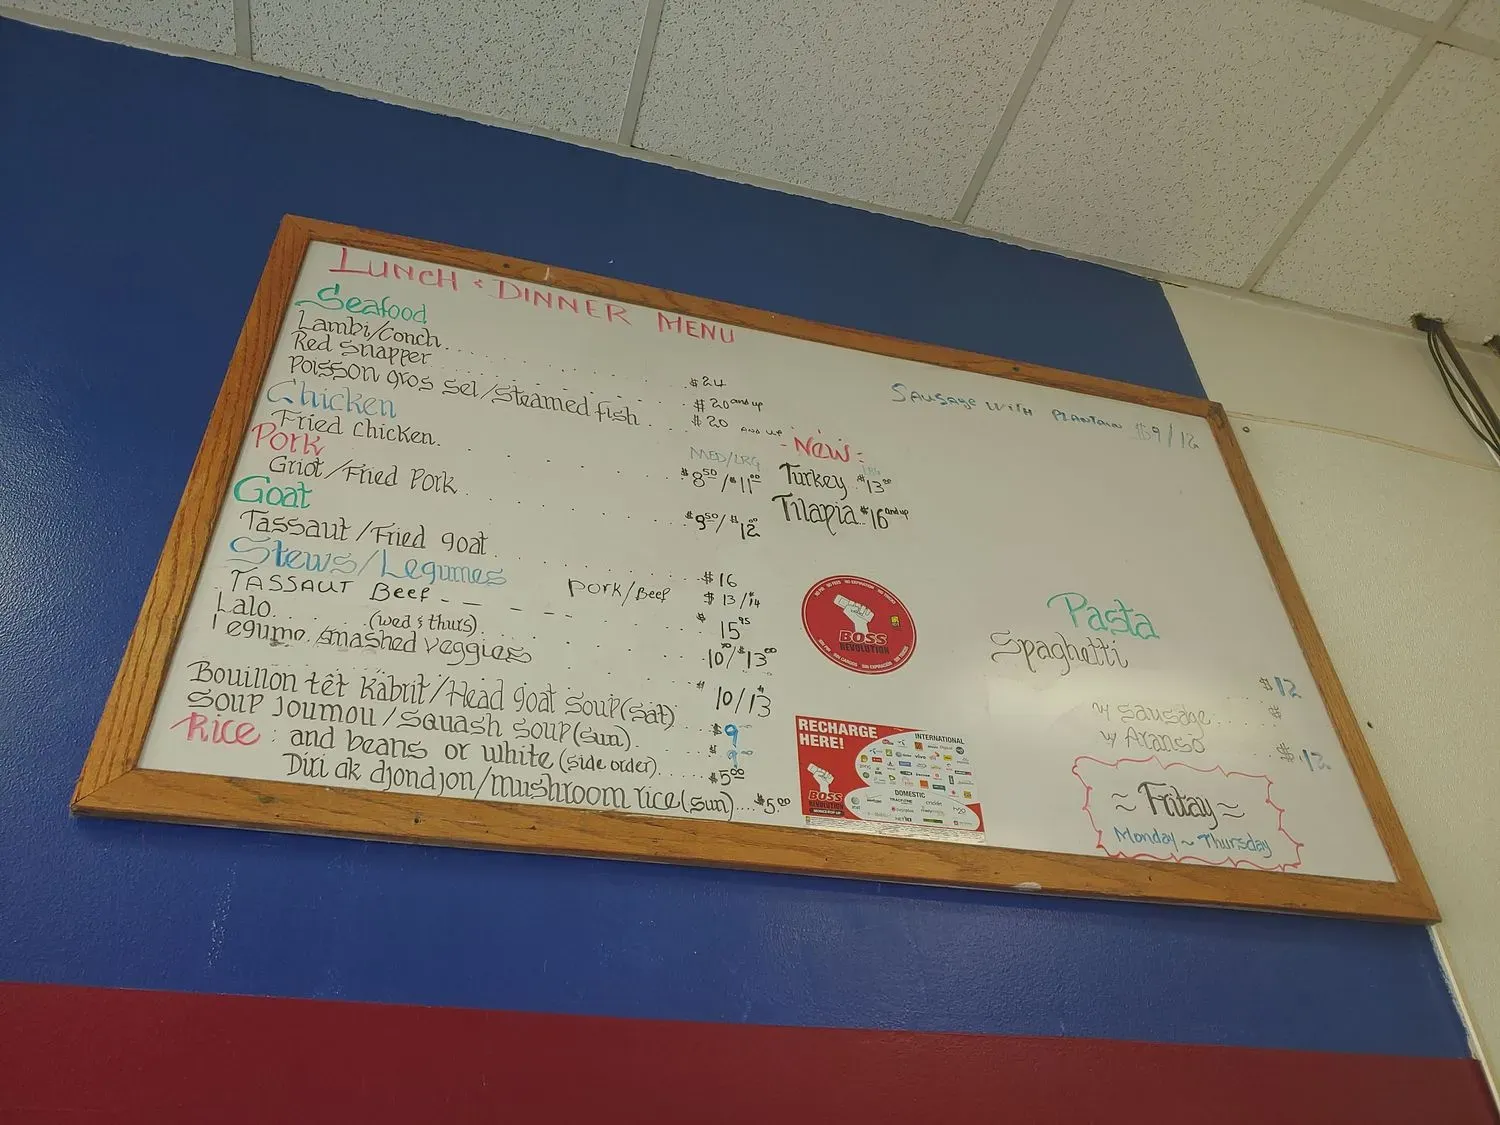 LUNCH & DINNER MENU
Seafood
Lambi/Conch $24
Red Snapper $20 and up
Poisson gros sel/Steamed fish $20 and up
Chicken MED/LRG
Fried chicken $8.50/$11.00
Pork
Griot/Fried Pork $9.50/$12.00
Goat
Tassaut/Fried goat $16
Stews/Legumes
TASSAUT Beef Pork/Beef $13/14
Lalo (wed & thurs) $15.95
Legume/smashed veggies 10/$13.00
Bouillon tèt Kabrit/Head goat soup (sat) $10/13
Soup Joumou/Squash soup (sun) $9
Rice: and beans or white (side order) $5.00
Diri ak djondjon/mushroom rice (sun) $5.00
SAUSAGE WITH PLANTAIN $9/12
- New:
Turkey $13.00
Tilapia $16 and up
NO PIN NO FEES NO EXPIRATION
BOSS
REVOLUTION
RECHARGE
HERE!
BOSS
REVOLUTION
INTERNATIONAL
DOMESTIC
Pasta
Spaghetti $12
w/ Sausage $
w/ Aranso $13
~ Fritay ~
Monday ~ Thursday